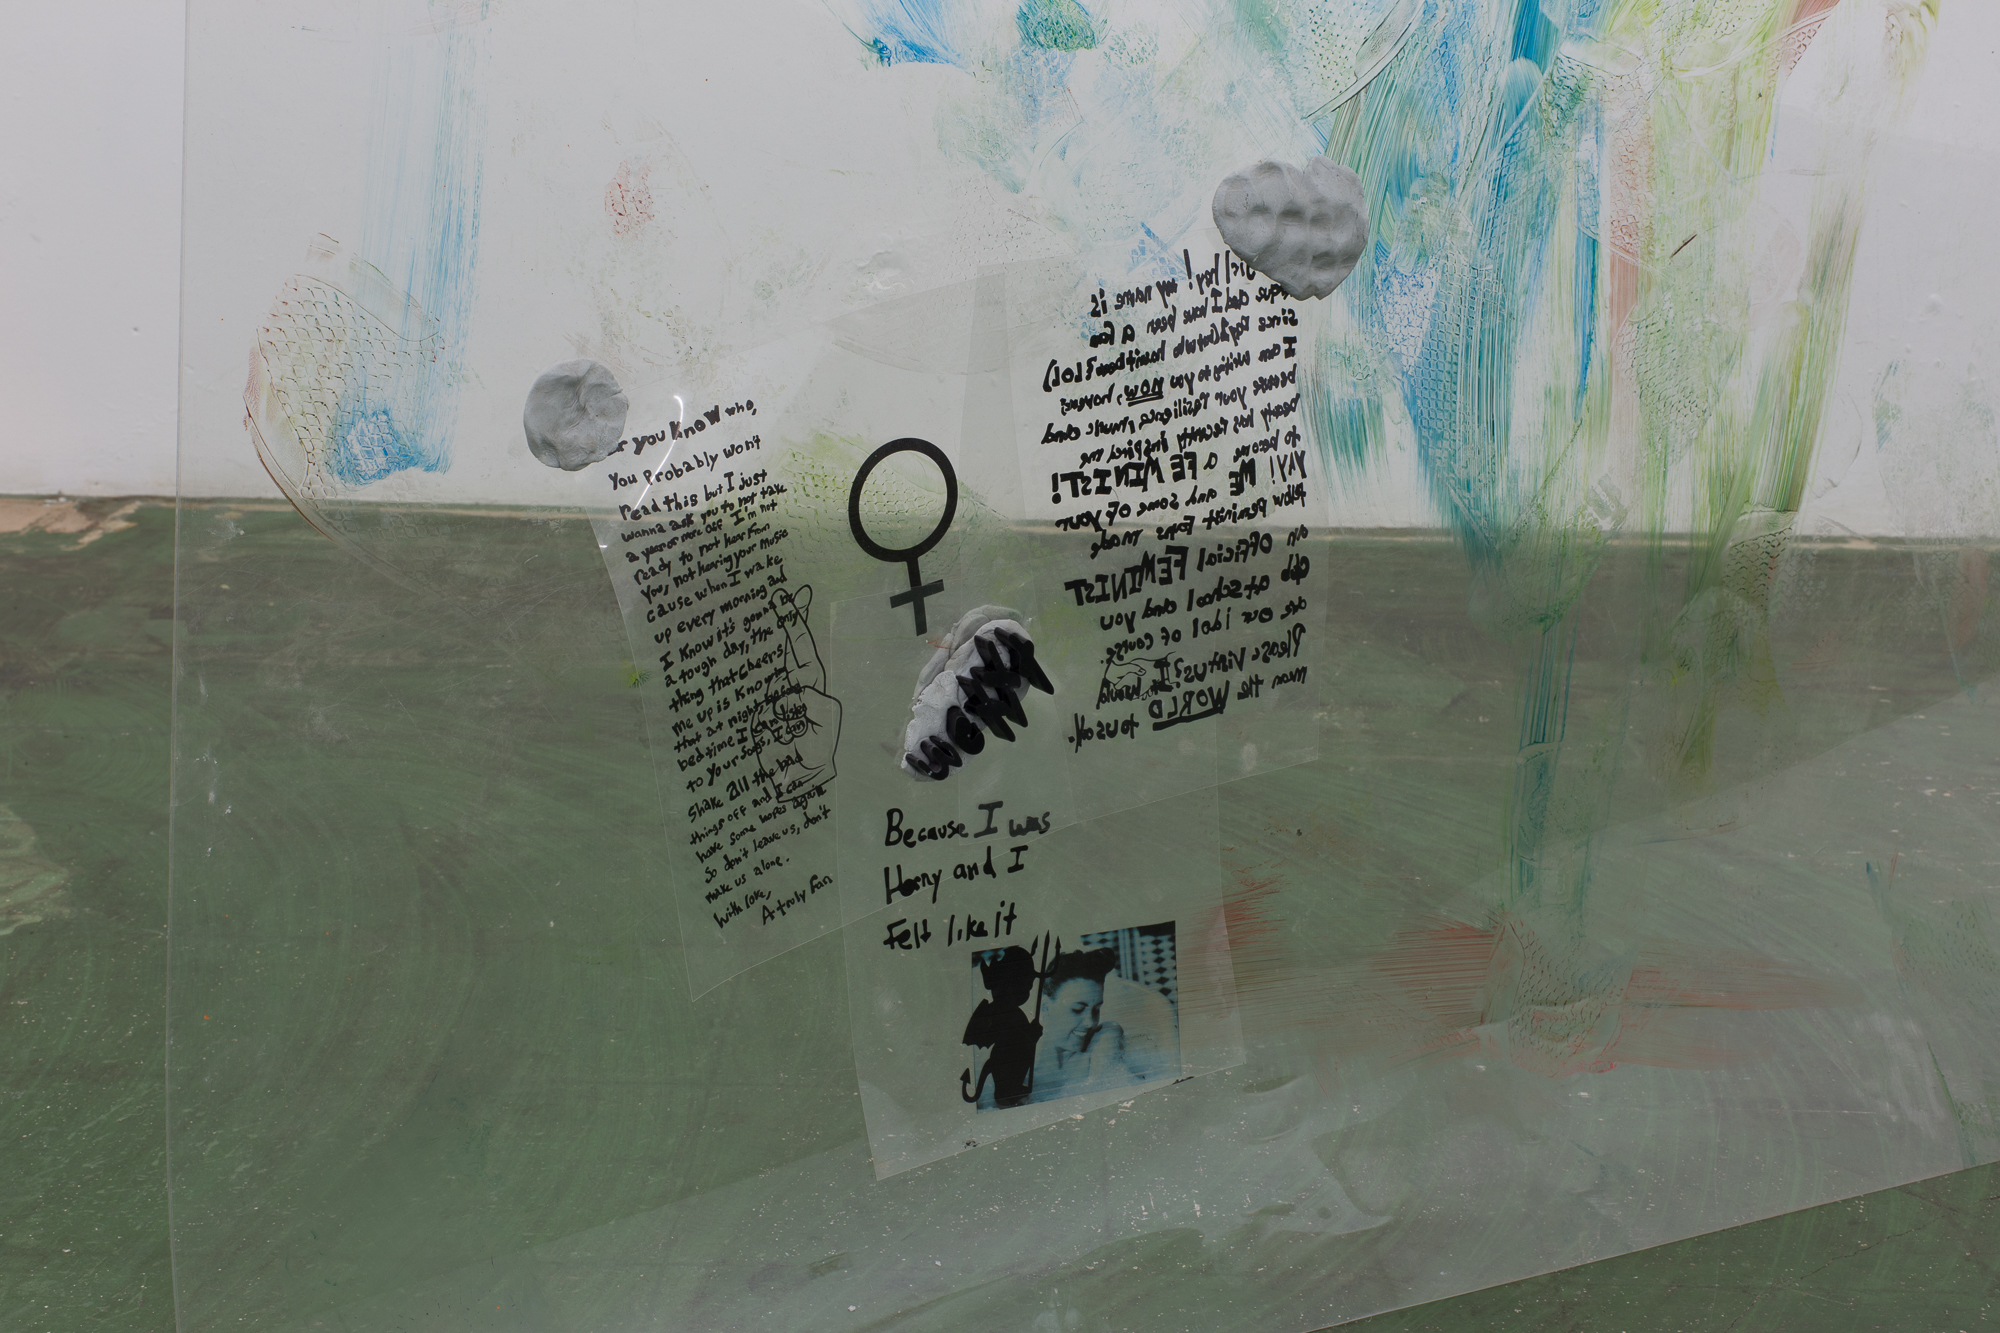 r you know who,
You probably won't
read this but I just
wanna ask you to not take
a year or more off I'm not
ready to not hear from
you, not hearing your music
cause when I wake
up every morning and
I know it's gonna be
a tough day, the only
thing that cheers
me up is knowing
that at night, before
bedtime I can listen
to your songs, I can
shake all the bad
things off and I can
have some hopes again
So don't leave us, don't
make us alone.
With love,
A truly fan
girl hey! my name is
and I have been a fan
since Day 1 (but who hasn't been? LOL)
I am writing to you now, however,
because your resilience, music and
beauty has recently inspired me
to become a FEMINIST!
YAY! ME and some of your
fellow feminist fans made
an OFFicial FEMINIST
club at school and you
are our idol of course.
Please visit us? It would
mean the WORLD to us all.
Because I was
Horny and I
Felt like it